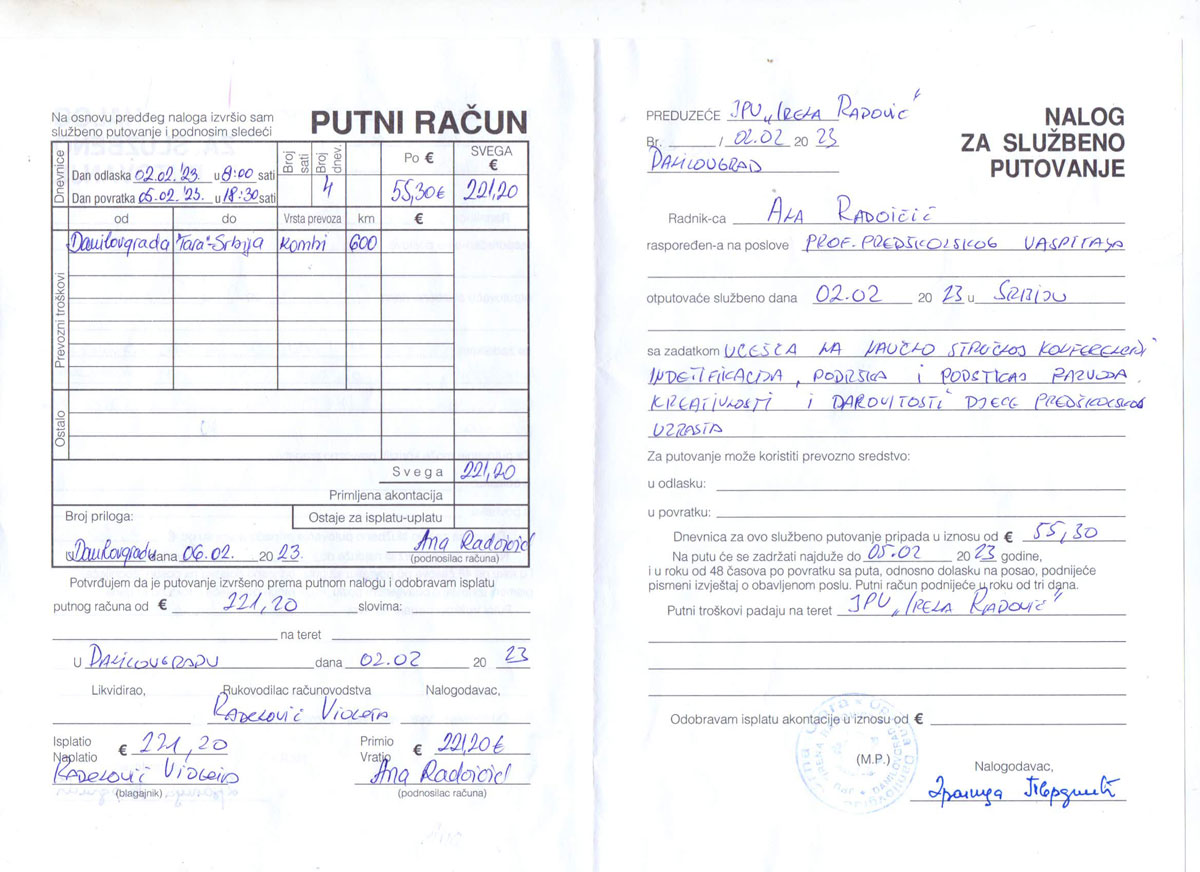 Na osnovu predđeg naloga izvršio sam
službeno putovanje i podnosim sledeći
PUTNI RAČUN
Dnevnice
Dan odlaska 02.02.'23. u 8:00 sati
Dan povratka 05.02.'23. u 18:30 sati
Broj sati
Broj dnev.
4
Po €
55,30€
SVEGA €
221,20
od do Vrsta prevoza km €
Prevozni troškovi
Danilovgrada "Tara"-Srbija Kombi 600
Ostalo
Svega 221,20
Primljena akontacija
Broj priloga:
Ostaje za isplatu-uplatu
u Danilovgradu dana 06.02. 2023. Ana Radoičić
(podnosilac računa)
Potvrđujem da je putovanje izvršeno prema putnom nalogu i odobravam isplatu
putnog računa od € 221,20 slovima:
na teret
U DANILOVGRADU dana 02.02 20 23
Likvidirao, Rukovodilac računovodstva Nalogodavac,
RADELOVIĆ VIOLETA
Isplatio
Naplatio € 221,20
RADELOVIĆ VIOLETA
(blagajnik)
Primio
Vratio € 221,20€
Ana Radoičić
(podnosilac računa)
PREDUZEĆE JPU „IRENA RADOVIĆ"
Br. / 02.02 20 23
DANILOVGRAD
NALOG
ZA SLUŽBENO
PUTOVANJE
Radnik-ca ANA RADOIČIĆ
raspoređen-a na poslove PROF. PREDŠKOLSKOG VASPITANJA
otputovaće službeno dana 02.02 20 23 u SRBIJU
sa zadatkom UČEŠĆA NA NAUČNO STRUČNOJ KONFERENCIJI
INDETIFIKACIJA, PODRŠKA I PODSTICAJ RAZVOJA
KREATIVNOSTI I DAROVITOSTI DJECE PREDŠKOLSKOG
UZRASTA
Za putovanje može koristiti prevozno sredstvo:
u odlasku:
u povratku:
Dnevnica za ovo službeno putovanje pripada u iznosu od € 55,30
Na putu će se zadržati najduže do 05.02 20 23 godine,
i u roku od 48 časova po povratku sa puta, odnosno dolasku na posao, podnijeće
pismeni izvještaj o obavljenom poslu. Putni račun podnijeće u roku od tri dana.
Putni troškovi padaju na teret JPU „IRENA RADOVIĆ"
Odobravam isplatu akontacije u iznosu od €
(M.P.)
Nalogodavac,